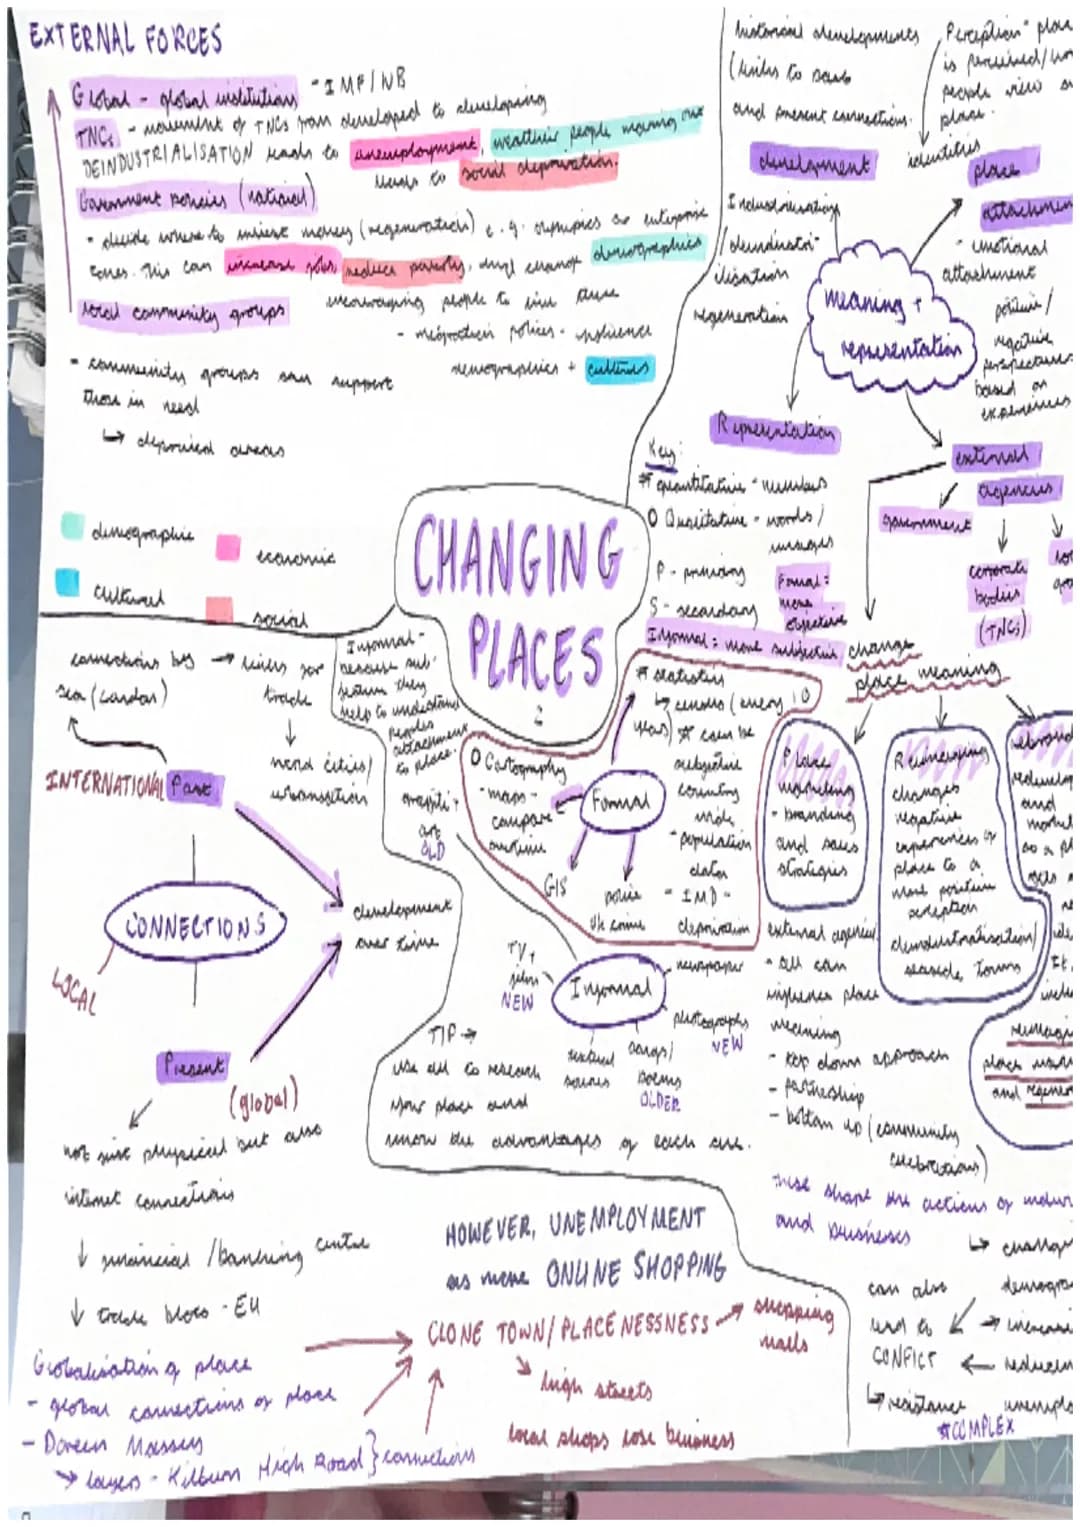 EXTERNAL FORCES
Global - global institutions - IMF / WB
TNCs - movement of TNCs from developed to developing
DEINDUSTRIALISATION leads to unemployment, wealthier people moving out
leads to social deprivation.
Government policies (national)
- decide where to invest money (regeneration) e.g. olympics or enterprise
zones. This can increase jobs, reduce poverty, and change demographics
encouraging people to live there
- migration policies - influence
demographics + cultures
local community groups
- community groups can support
those in need
↳ deprived areas
demographic
economic
cultural
social
CHANGING
PLACES
:
historical developments
(links to past
and present connections.
development
Industrialisation
/deindustri-
ilisation
regeneration
Perception - place
is perceived/
people view
place.
identities
place
attachment
- emotional
attachment
positive /
negative
perspectives
based on
experiences
meaning +
representation
Representation
Key:
# quantitative - numbers
O Qualitative - words /
images
P - primary
S - secondary
Formal:
more
objective
Informal: more subjective
external
agencies
government
corporate
bodies
(TNCs)
change
place meaning
connections by → links for
sea (London) trade
↓
world cities/
INTERNATIONAL Past
CONNECTIONS
LOCAL
development
over time
Present
(global)
not just physical but also
internet connections
↓ financial / banking centre
↓ trade blocs - EU
Globalisation of place
- global connections of place
- Doreen Massey
→ layers - Kilburn High Road } connections
Informal -
because sub-
help to understand
peoples
attachment
to place.
graffiti +
art
OLD
# statistics
↳ census (every 10
years) # can be
subjective
counting
- population
data
- IMD -
deprivation
O Cartography
- maps -
compare
Formal
GIS
police
uk crime
Informal
TV +
films
NEW
newspaper
photographs
NEW
textual
sources
songs/
poems
OLDER
TIP →
use all to research
your place and
know the advantages of each one.
Place
marketing
- branding
and sales
strategies
Reimaging
changes
negative
experiences of
place to a
more positive
deindustrialisation/
seaside towns
external agencies
- all can
influence place
meaning
- top down approach
- partnership
- bottom up (community
celebrations)
and
as a
place
and
these shape the actions of
and businesses
can also
lead to
CONFICT
↳ resistance
*COMPLEX
HOWEVER, UNEMPLOYMENT
as more ONLINE SHOPPING
CLONE TOWN/PLACENESSNESS → shopping
malls
high streets
local shops lose business